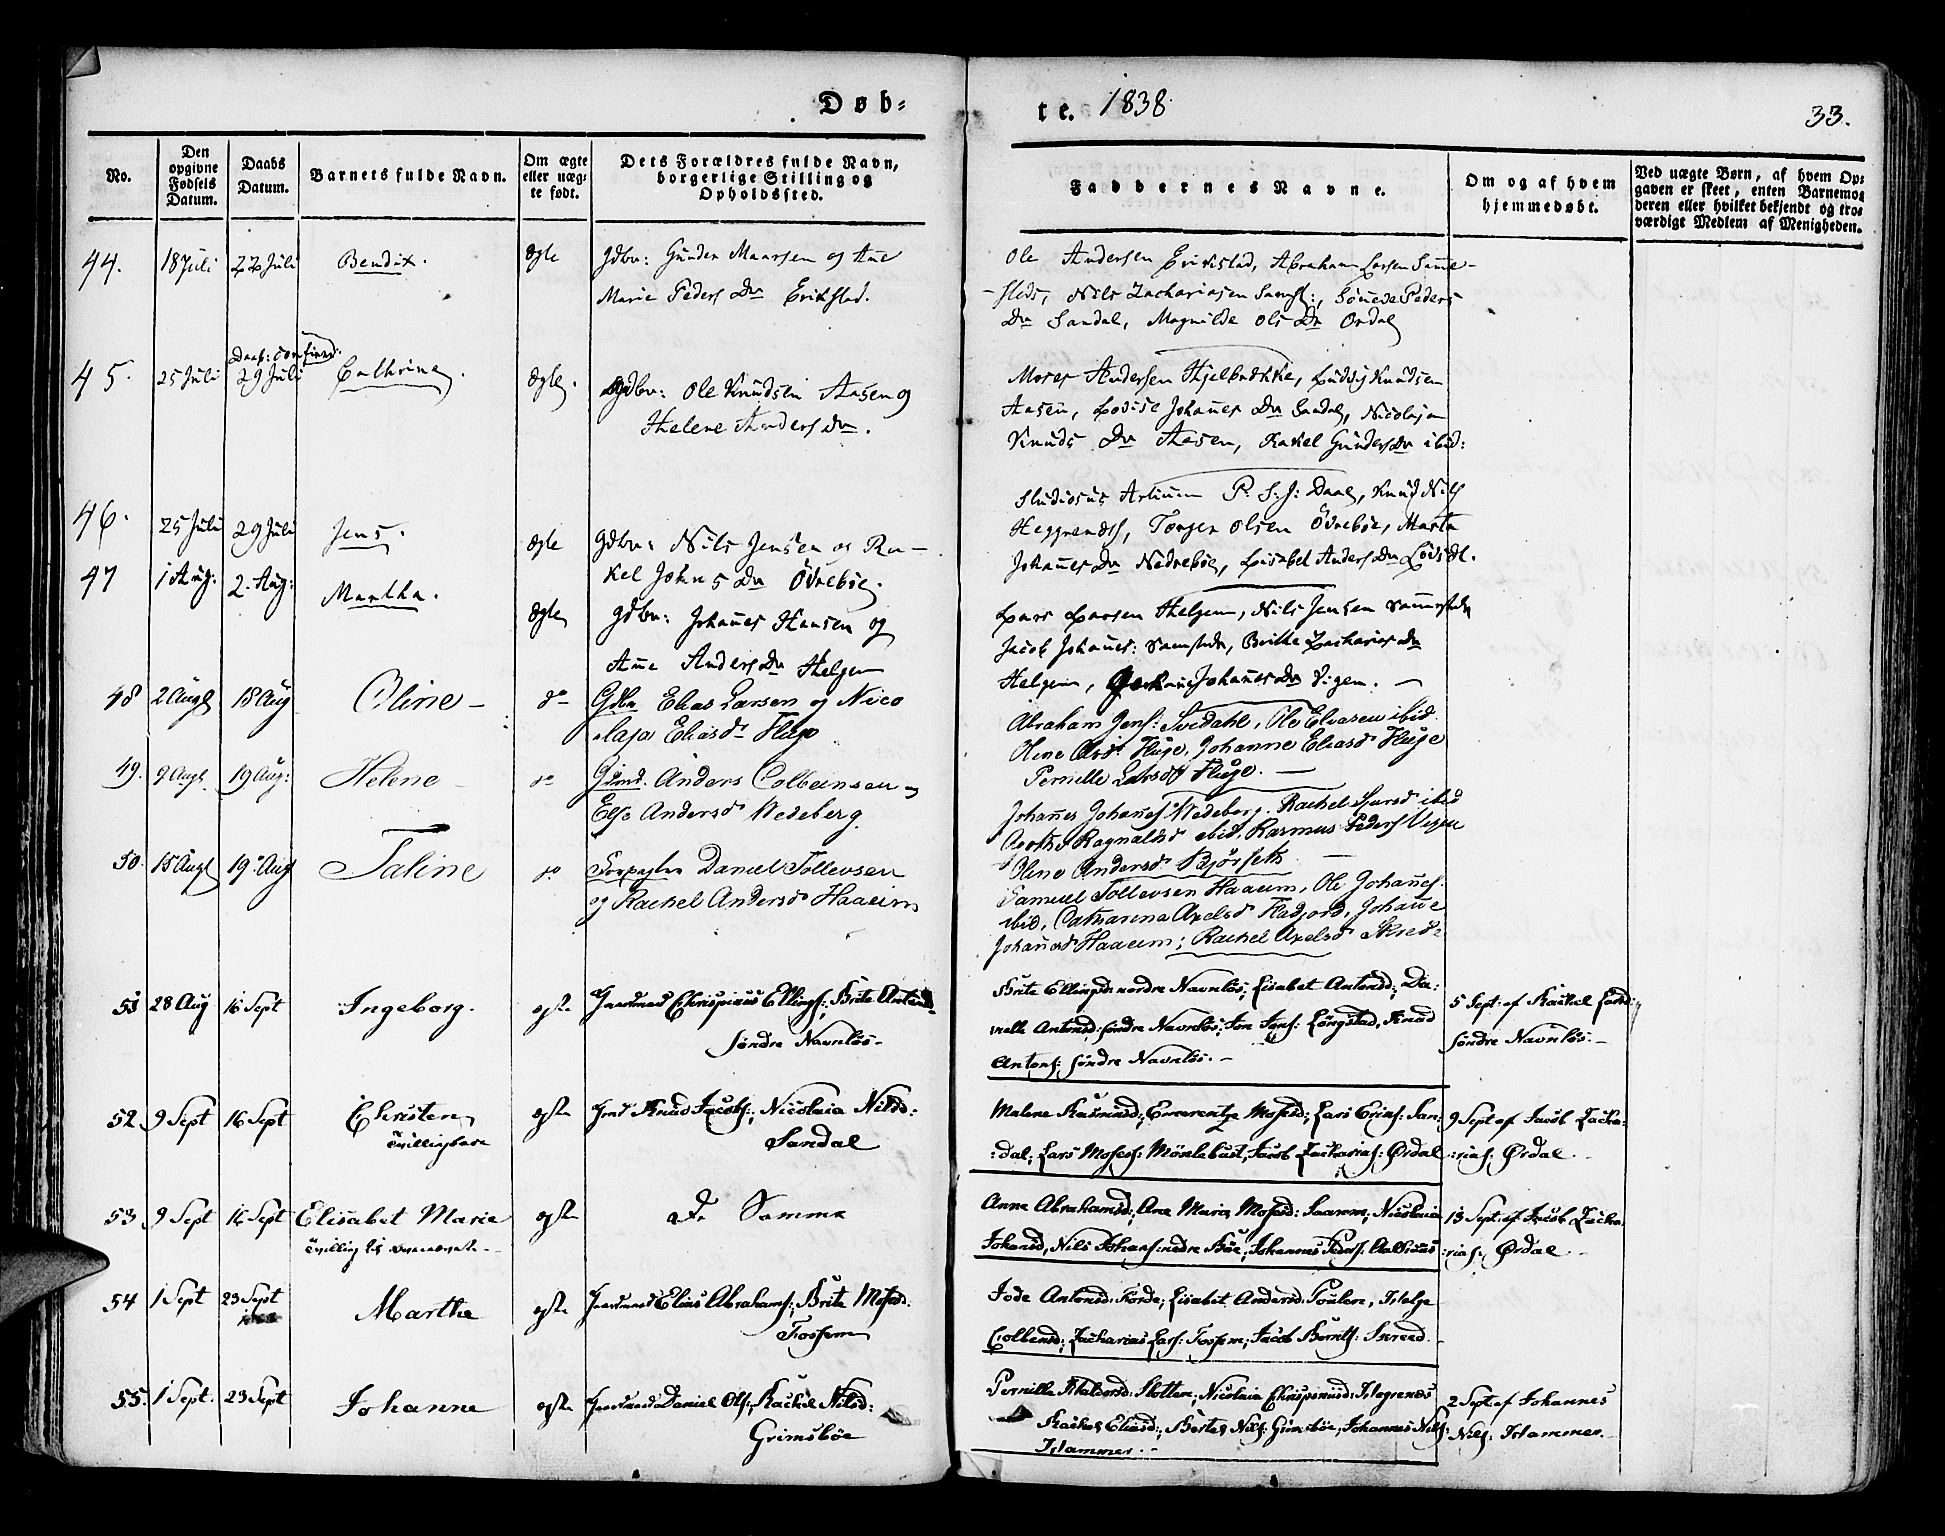 Døb-
te. 1838
33.
No.
Den opgivne Fødsels Datum.
Daabs Datum.
Barnets fulde Navn.
Om ægte eller uægte født.
Dets Forældres fulde Navn, borgerlige Stilling og Opholdssted.
Faddernes Navne.
Om og af hvem hjemmedøbt.
Ved uægte Børn, af hvem Opgaven er skeet, enten Barnemoderen eller hvilket bekjendt og troværdigt Medlem af Menigheden.
44. 18 Juli 22 Juli Bendix. Ægte Gdbr: Gunder Maarsen og Ane
Marie Peders Dr Erikstad.
Ole Andersen Erikstad, Abraham Larsen Samme-
-steds, Nils Zachariasen Peders
Dr Sandal, Magnilde Ols Dr Ordal
Daab: confirm:
45. 25 Juli 29 Juli Cathrine. Ægte. Gdbr: Ole Knudsen Aasen og
Helene Anders Dr.
Moses Andersen Ludvig Knudsen
Aasen, Lovise Johannes Dr Sandal, Nicolaja
Knuds Dr Aasen, Rakel Gunders Dr ibid:
46. 25 Juli 29 Juli Jens. Ægte Gdbr: Nils Jensen og Ra-
kel Johns Dr Övreböe.
Studiosus Artium P: S: J: Daae, Knud Nils
Torger Olsen Övreböe, Marta
Johannes Dr Nedreböe, Lisabet Anders Dr
47 1 Aug: 2. Aug: Martha. Ægte Gdbr: Johannes Hansen og
Ane Anders Dr Helgem
Lars Larsen Helgem, Nils Jensen
Jacob Johannes: Britte Zacharias Dr
Helgem, Johannes Dr Vigen. -
48 2 Augt 18 Aug Oline - do Gdbr Elias Larsen og Nico
laja Eliasdr Fluge
Abraham Jens: Svidahl, Ole Eliasen ibid.
Oline Olsdr Fluge, Johanne Eliasd Fluge
Pernille Larsdt Fluge. -
49. 9 Augt. 19 Aug: Helene - do Anders Colbeinsen og
Else Andersdr Wedeberg.
Johannes Johannes Wedeberg. Rachel ibid
Ragnaldsd ibid, Rasmus Peders Vigen
Oline Andersd Bjørseth -
50. 15 Augt 19 Aug Taline do Daniel Tollevsen
og Rachel Andersdr Haaeim
Samuel Tollevsen Haaeim, Ole Johannes.
ibid, Catharina Axelsd Johanne
Johannesd Haaeim; Rachel Axelsd Skred-
51 28 Aug 16 Sept Ingeborg. ægte Gaardmand Chrispinus Ellings:; Brite
søndre Navnløs-
Brite Ellingsd: nordre Navnløs; Lisabet Antonsd:; Da:
nielle Antonsd: søndre Navnløs; Jon Jens: Longstad, Knud
Antons: søndre Navnløs. -
5 Sept: af Rachel Larsd:
søndre Navnløs. -
52. 9 Sept 16 Sept Christen ægte Knud Jacobs:; Nicolaia Nilsd:
Tvillingbarn Sandal
Malene Rasmusd:; Emerentze Mosesd:; Lars Erias: San:
:dal; Lars Moses: Møslebust; Jacob Zacharias: Ørdal
9 Sept af Jacob Zacha:
:rias: Ørdal.
53 9 Sept 16 Sept Elisabet Marie ægte De Samme
Tvilling til
Anne Abrahamsd:; Ane Marie Mosesd: Nicolaia
Johansd, Nils Johans: nedre Bøe; Johannes Peders:
13 Sept: af Jacob Zacha:
:rias: Ørdal -
54 1 Sept 23 Sept Marthe ægte Gaardmand Elias Abrahams:; Brite Mosesd:
Fossem
Antonsd: Førde; Lisabet Andersd: Helge
Colbensd:; Zacharias Lars: Fossem; Jacob Bernts: Skreed.
55. 1 Sept. 23 Sept Johanne ægte Gaardmand Daniel Ols:; Rachel Nilsd:
Grimsbøe
Pernille Halvorsd: Slotten; Nicolaia Chrispinusd:
Rachel Eliasd:; Nils: Grimsbøe; Johannes Nils:
Hammer. -
2 Sept af Johannes
Nils: Hammer.